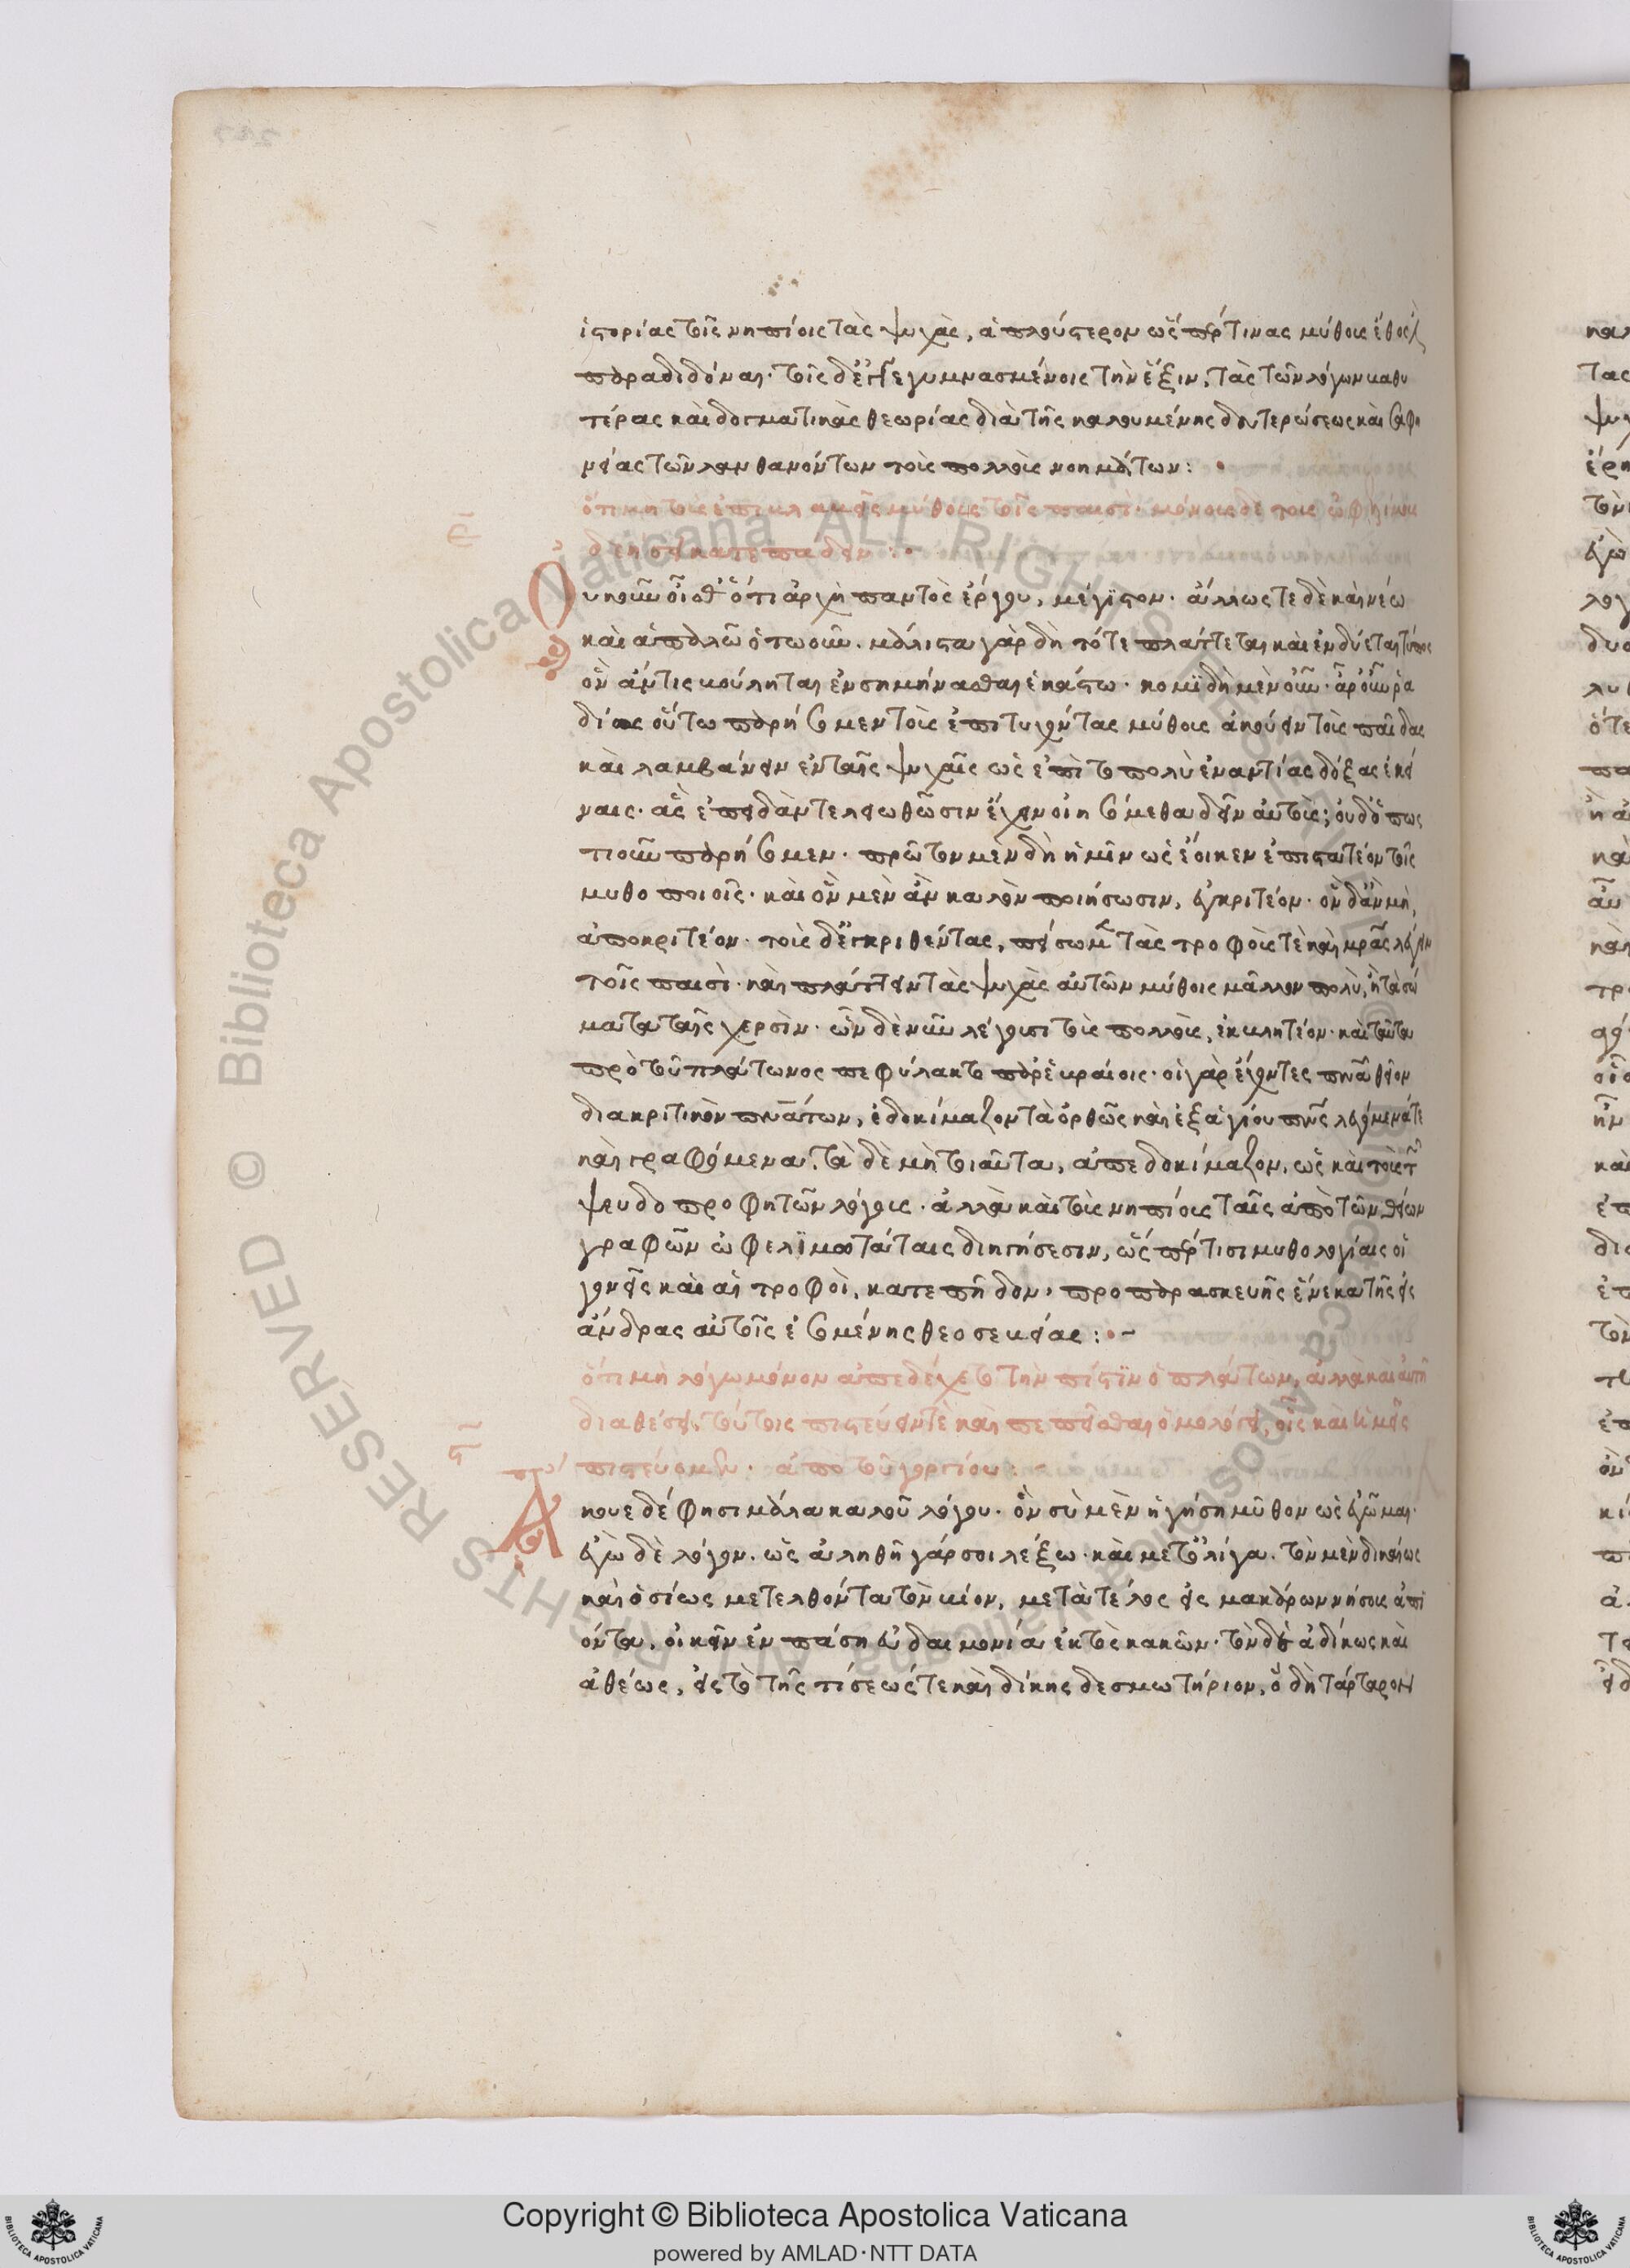 ἱστορίας τοῖς νηπίοις τὰς ψυχὰς, ἁπλούστερον ὥσπέρ τινας μύθους ἔθος
παραδιδόναι· τοῖς δὲ ἤδη γεγυμνασμένοις τὴν ἕξιν, τὰς τῶν λόγων βαθυ
τέρας καὶ δογματικὰς θεωρίας διὰ τῆς καλουμένης δευτερώσεως καὶ σαφη
νείας τῶν λανθανόντων τοὺς πολλοὺς νοημάτων:
ὅτι μὴ τοὺς ἐπιβλαβεῖς μύθους τοῖς παισὶ· μόνους δὲ τοὺς ὠφελίμους
δεήσει κατεπάδειν:
Ουκοῦν οἶσθ' ὅτι ἀρχὴ παντὸς ἔργου, μέγιστον· ἄλλως τε δὲ καὶ νέω
καὶ ἁπαλῶ ὁτωοῦν. μάλιστα γὰρ δὴ τότε πλάττεται καὶ ἐνδύεται τύπος
ὃν ἄν τις βούληται ἐνσημήνασθαι ἑκάστω· κομιδῆ μὲν οὖν· ἆρ' οὖν ῥα
δίως οὕτω παρήσομεν τοὺς ἐπιτυχόντας μύθους ἀκούειν τοὺς παῖδας
καὶ λαμβάνειν ἐν ταῖς ψυχαῖς ὡς ἐπὶ τὸ πολὺ ἐναντίας δόξας ἐκεί
ναις· ἃς ἐπειδὰν τελειωθῶσιν ἔχειν οἰησόμεθα δεῖν αὐτούς; οὐδ' ὅπως
τιοῦν παρήσομεν· πρῶτον μὲν δὴ ἡμῖν ὡς ἔοικεν ἐπιστατέον τοῖς
μυθοποιοῖς· καὶ ὃν μὲν ἂν καλὸν ποιήσωσιν, ἐγκριτέον· ὃν δ' ἂν μὴ,
ἀποκριτέον· τοὺς δ' ἐγκριθέντας, πείσομεν τὰς τροφούς τε καὶ μρας λέγειν
τοῖς παισὶ· καὶ πλάττειν τὰς ψυχὰς αὐτῶν μύθοις μᾶλλον πολὺ, ἢ τὰ σώ
ματα ταῖς χερσίν· ὧν δὲ νῦν λέγουσι τοὺς πολλοὺς, ἐκβλητέον· καὶ ταῦτα
πρὸ τοῦ πλάτωνος πεφύλακτο παρ' ἑβραίοις· οἱ γὰρ ἔχοντες πνα θεῖον
διακριτικὸν πνάτων, ἐδοκίμαζον τὰ ὀρθῶς καὶ ἐξ ἁγίου πνς λεγόμενά τε
καὶ γραφόμενα, τὰ δὲ μὴ τοιαῦτα, ἀπεδοκίμαζον, ὡς καὶ τοὺς τῶν
ψευδοπροφητῶν λόγους. ἀλλὰ καὶ τοὺς νηπίους ταῖς ἀπὸ τῶν θείων
γραφῶν ὠφελιμωτάταις διηγήσεσιν, ὥσπέρ τισι μυθολογίαις οἱ
γονεῖς καὶ αἱ τροφοὶ, κατεπῆδον, προπαρασκευῆς ἕνεκα τῆς εἰς
ἄνδρας αὐτοῖς ἐσομένης θεοσεβείας:
ὅτι μὴ λόγω μόνον ἀπεδέχετο τὴν πίστιν ὁ πλάτων, ἀλλὰ καὶ αὐτῆ
διαθέσει, τούτοις πιστεύειν τὲ καὶ πεπεῖσθαι ὁμολογεῖ, οἷς καὶ ἡμεῖς
πιστεύομεν. ἀπὸ τοῦ γοργίου:
Ακουε δέ φησι μάλα καλοῦ λόγου· ὃν σὺ μὲν ἡγήση μῦθον ὡς ἐγῶμαι·
ἐγὼ δὲ λόγον. ὡς ἀληθῆ γάρ σοι λέξω. καὶ μετ' ὀλίγα. τὸν μὲν δικαίως
καὶ ὁσίως μετελθόντα τὸν βίον, μετὰ τέλος εἰς μακάρων νήσους ἀπι
όντα, οἰκεῖν ἐν πάση εὐδαιμονία ἐκτὸς κακῶν· τὸν δὲ ἀδίκως καὶ
ἀθέως, εἰς τὸ τῆς τίσεώς τε καὶ δίκης δεσμωτήριον, ὃ δὴ τάρταρον
Copyright © Biblioteca Apostolica Vaticana
powered by AMLAD·NTT DATA